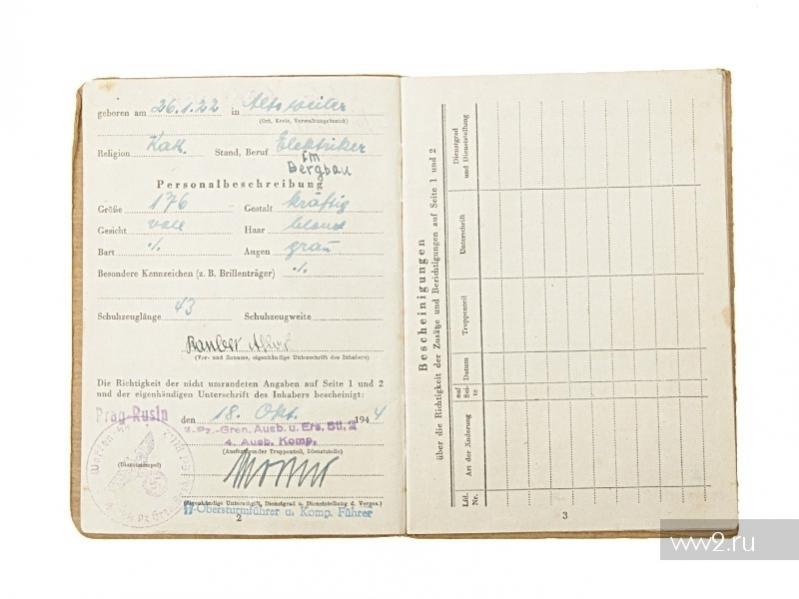 geboren am 26.1.22 in Altsweiler
(Ort, Kreis, Verwaltungsbezirk)
Religion Kath. Stand, Beruf Elektriker
im
Bergbau
Personalbeschreibung
Größe 176 Gestalt kräftig
Gesicht voll Haar blond
Bart ⁒ Augen grau
Besondere Kennzeichen (z. B. Brillenträger) ⁒
Schuhzeuglänge 43 Schuhzeugweite
(Vor- und Zuname, eigenhändige Unterschrift des Inhabers)
Die Richtigkeit der nicht umrandeten Angaben auf Seite 1 und 2
und der eigenhändigen Unterschrift des Inhabers bescheinigt:
Prag-Rusin den 18. Okt. 1944
-Pz.-Gren. Ausb. u. Ers. Btl. 2
4. Ausb. Komp.
(Ausfertigender Truppenteil, Dienststelle)
(Dienststempel)
(Eigenhändige Unterschrift, Dienstgrad u. Dienststellung d. Vorges.)
-Obersturmführer u. Komp. Führer
2
Bescheinigungen
über die Richtigkeit der Zusätze und Berichtigungen auf Seite 1 und 2
Lfd. Nr.
Art der Änderung
auf Seite
Datum
Truppenteil
Unterschrift
Dienstgrad und Dienststellung
3
ww2.ru